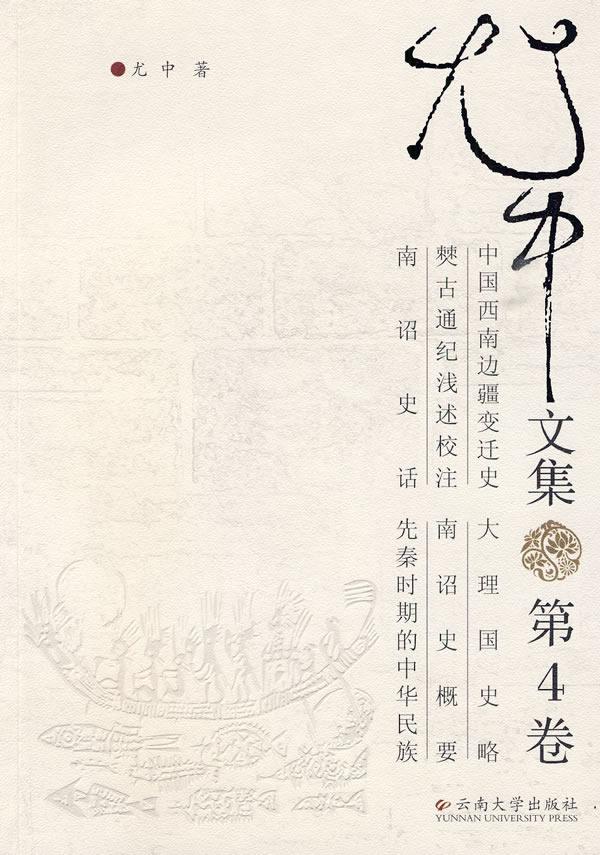 尤中 著
尤中
文集
第4卷
中国西南边疆变迁史
僰古通纪浅述校注
南诏史话
大理国史略
南诏史概要
先秦时期的中华民族
云南大学出版社
YUNNAN UNIVERSITY PRESS